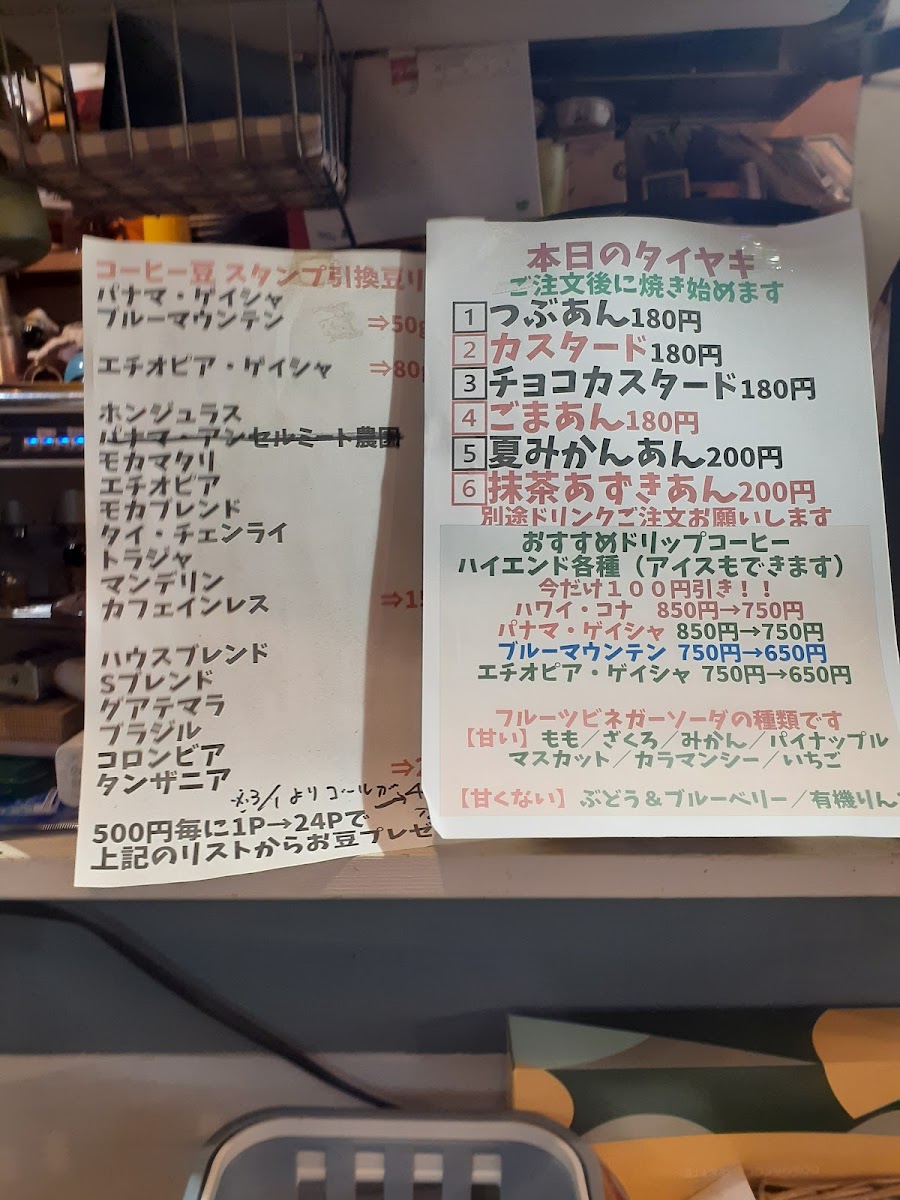 コーヒー豆 スタンプ引換豆リ
パナマ・ゲイシャ
ブルーマウンテン ⇒50g
エチオピア・ゲイシャ ⇒80g
ホンジュラス
パナマ・アンセルミート農園
モカマタリ
エチオピア
モカブレンド
タイ・チェンライ
トラジャ
マンデリン
カフェインレス ⇒15
ハウスブレンド
Sブレンド
グアテマラ
ブラジル
コロンビア
タンザニア ⇒2
※3/1よりゴールが→4
500円毎に1P→24Pで
上記のリストからお豆プレゼ
本日のタイヤキ
ご注文後に焼き始めます
1 つぶあん180円
2 カスタード180円
3 チョコカスタード180円
4 ごまあん180円
5 夏みかんあん200円
6 抹茶あずきあん200円
別途ドリンクご注文お願いします
おすすめドリップコーヒー
ハイエンド各種（アイスもできます）
今だけ１００円引き！！
ハワイ・コナ 850円→750円
パナマ・ゲイシャ 850円→750円
ブルーマウンテン 750円→650円
エチオピア・ゲイシャ 750円→650円
フルーツビネガーソーダの種類です
【甘い】もも／ざくろ／みかん／パイナップル
マスカット／カラマンシー／いちご
【甘くない】ぶどう＆ブルーベリー／有機りん